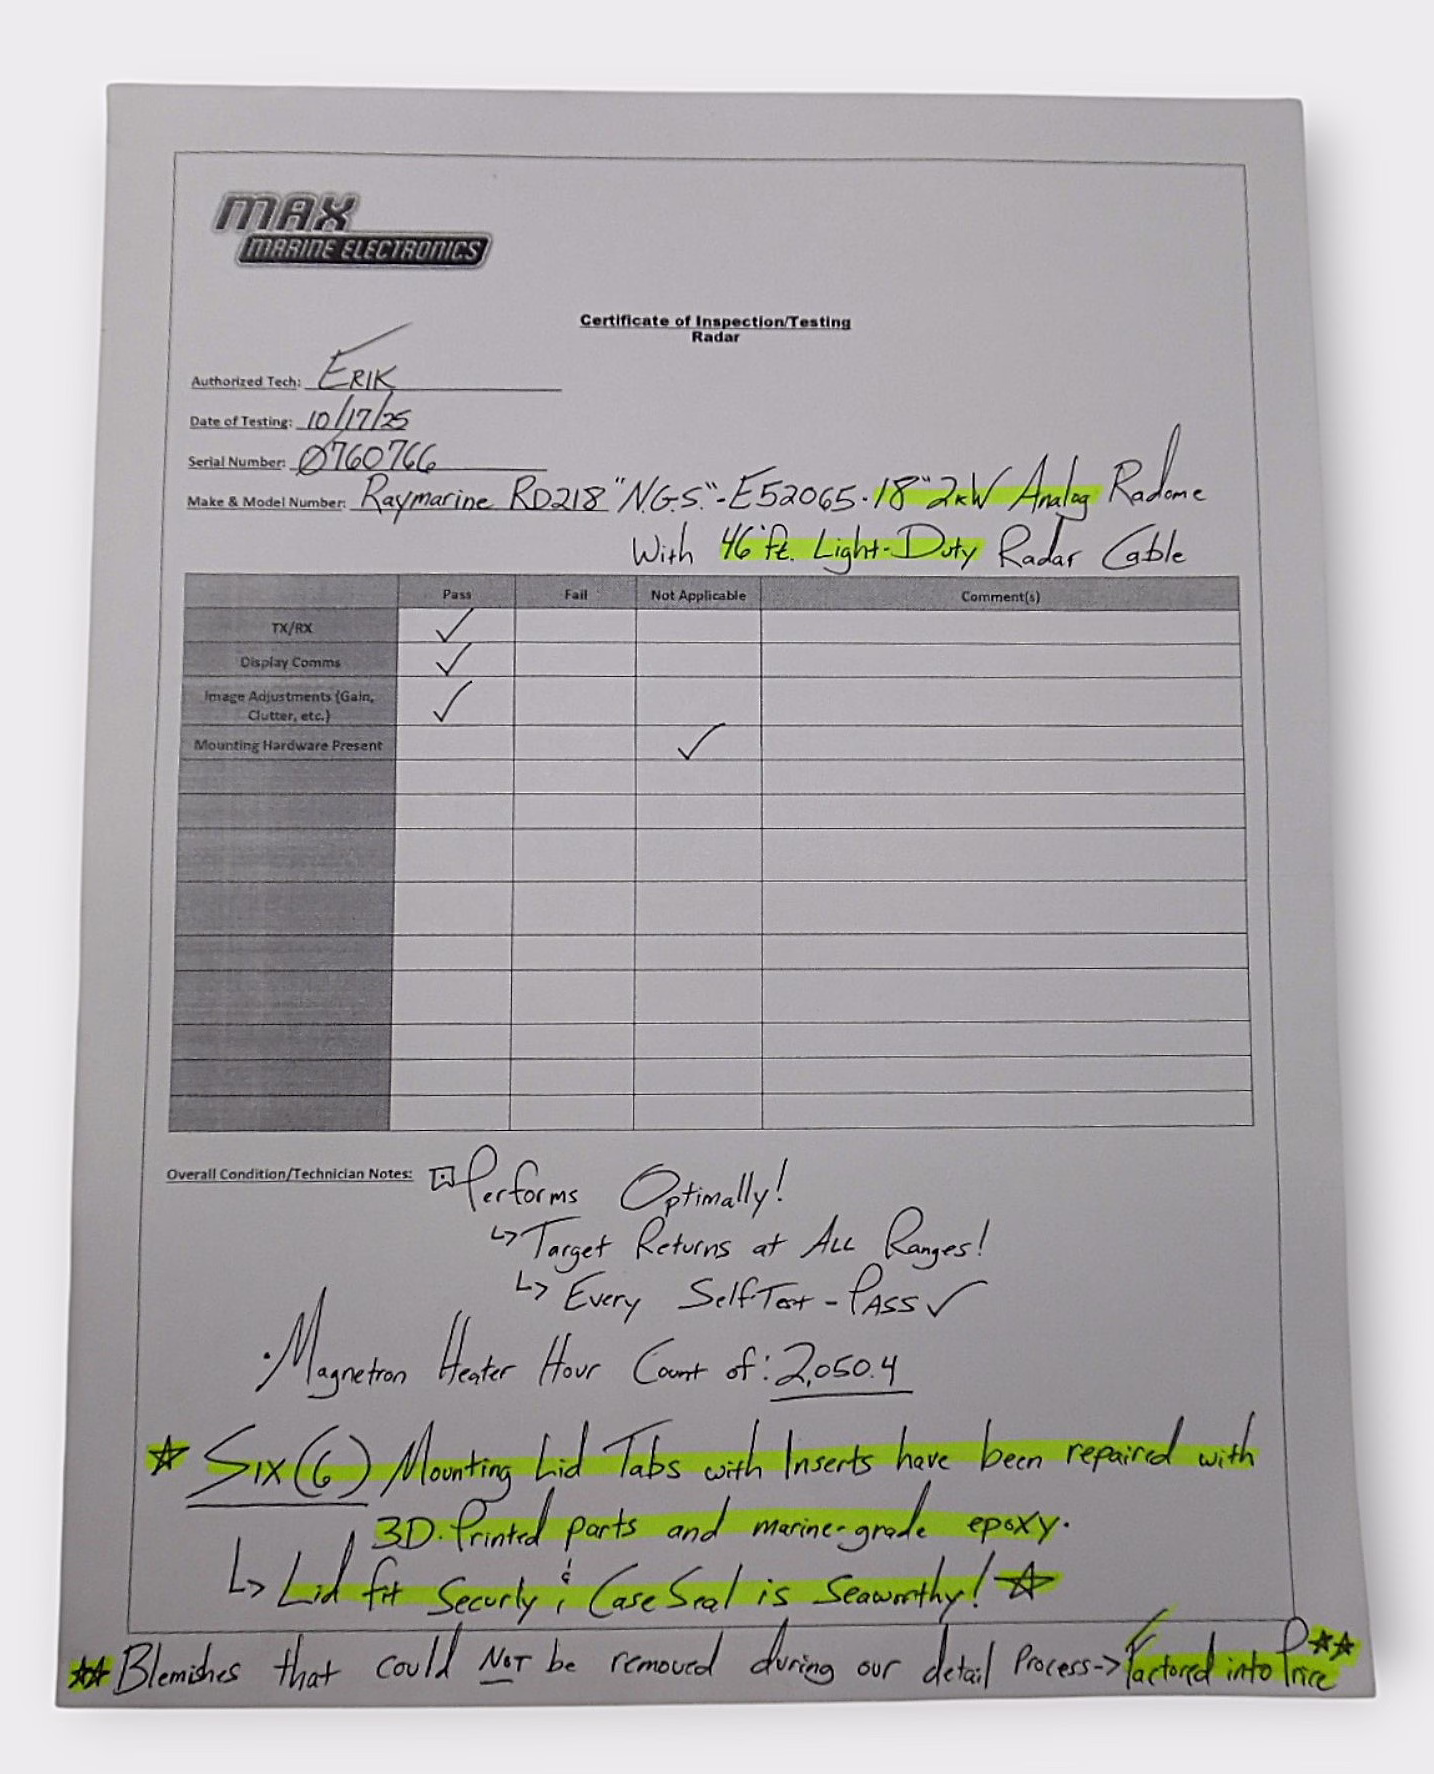 MAX
MARINE ELECTRONICS
Certificate of Inspection/Testing
Radar
Authorized Tech: ERIK
Date of Testing: 10/17/25
Serial Number: 0760766
Make & Model Number: Raymarine RD218 "N.G.S."-E52065-18" 2kW Analog Radome
With 46 ft. Light-Duty Radar Cable
Pass Fail Not Applicable Comment(s)
TX/RX ✓
Display Comms ✓
Image Adjustments (Gain,
Clutter, etc.) ✓
Mounting Hardware Present ✓
Overall Condition/Technician Notes: Performs Optimally!
↳ Target Returns at ALL Ranges!
↳ Every Self Test - PASS ✓
• Magnetron Heater Hour Count of: 2,050.4
☆ Six (6) Mounting Lid Tabs with Inserts have been repaired with
3D-Printed parts and marine-grade epoxy.
↳ Lid fit Securly & Case Seal is Seaworthy! ☆
☆☆ Blemishes that could NOT be removed during our detail Process -> Factored into Price ☆☆